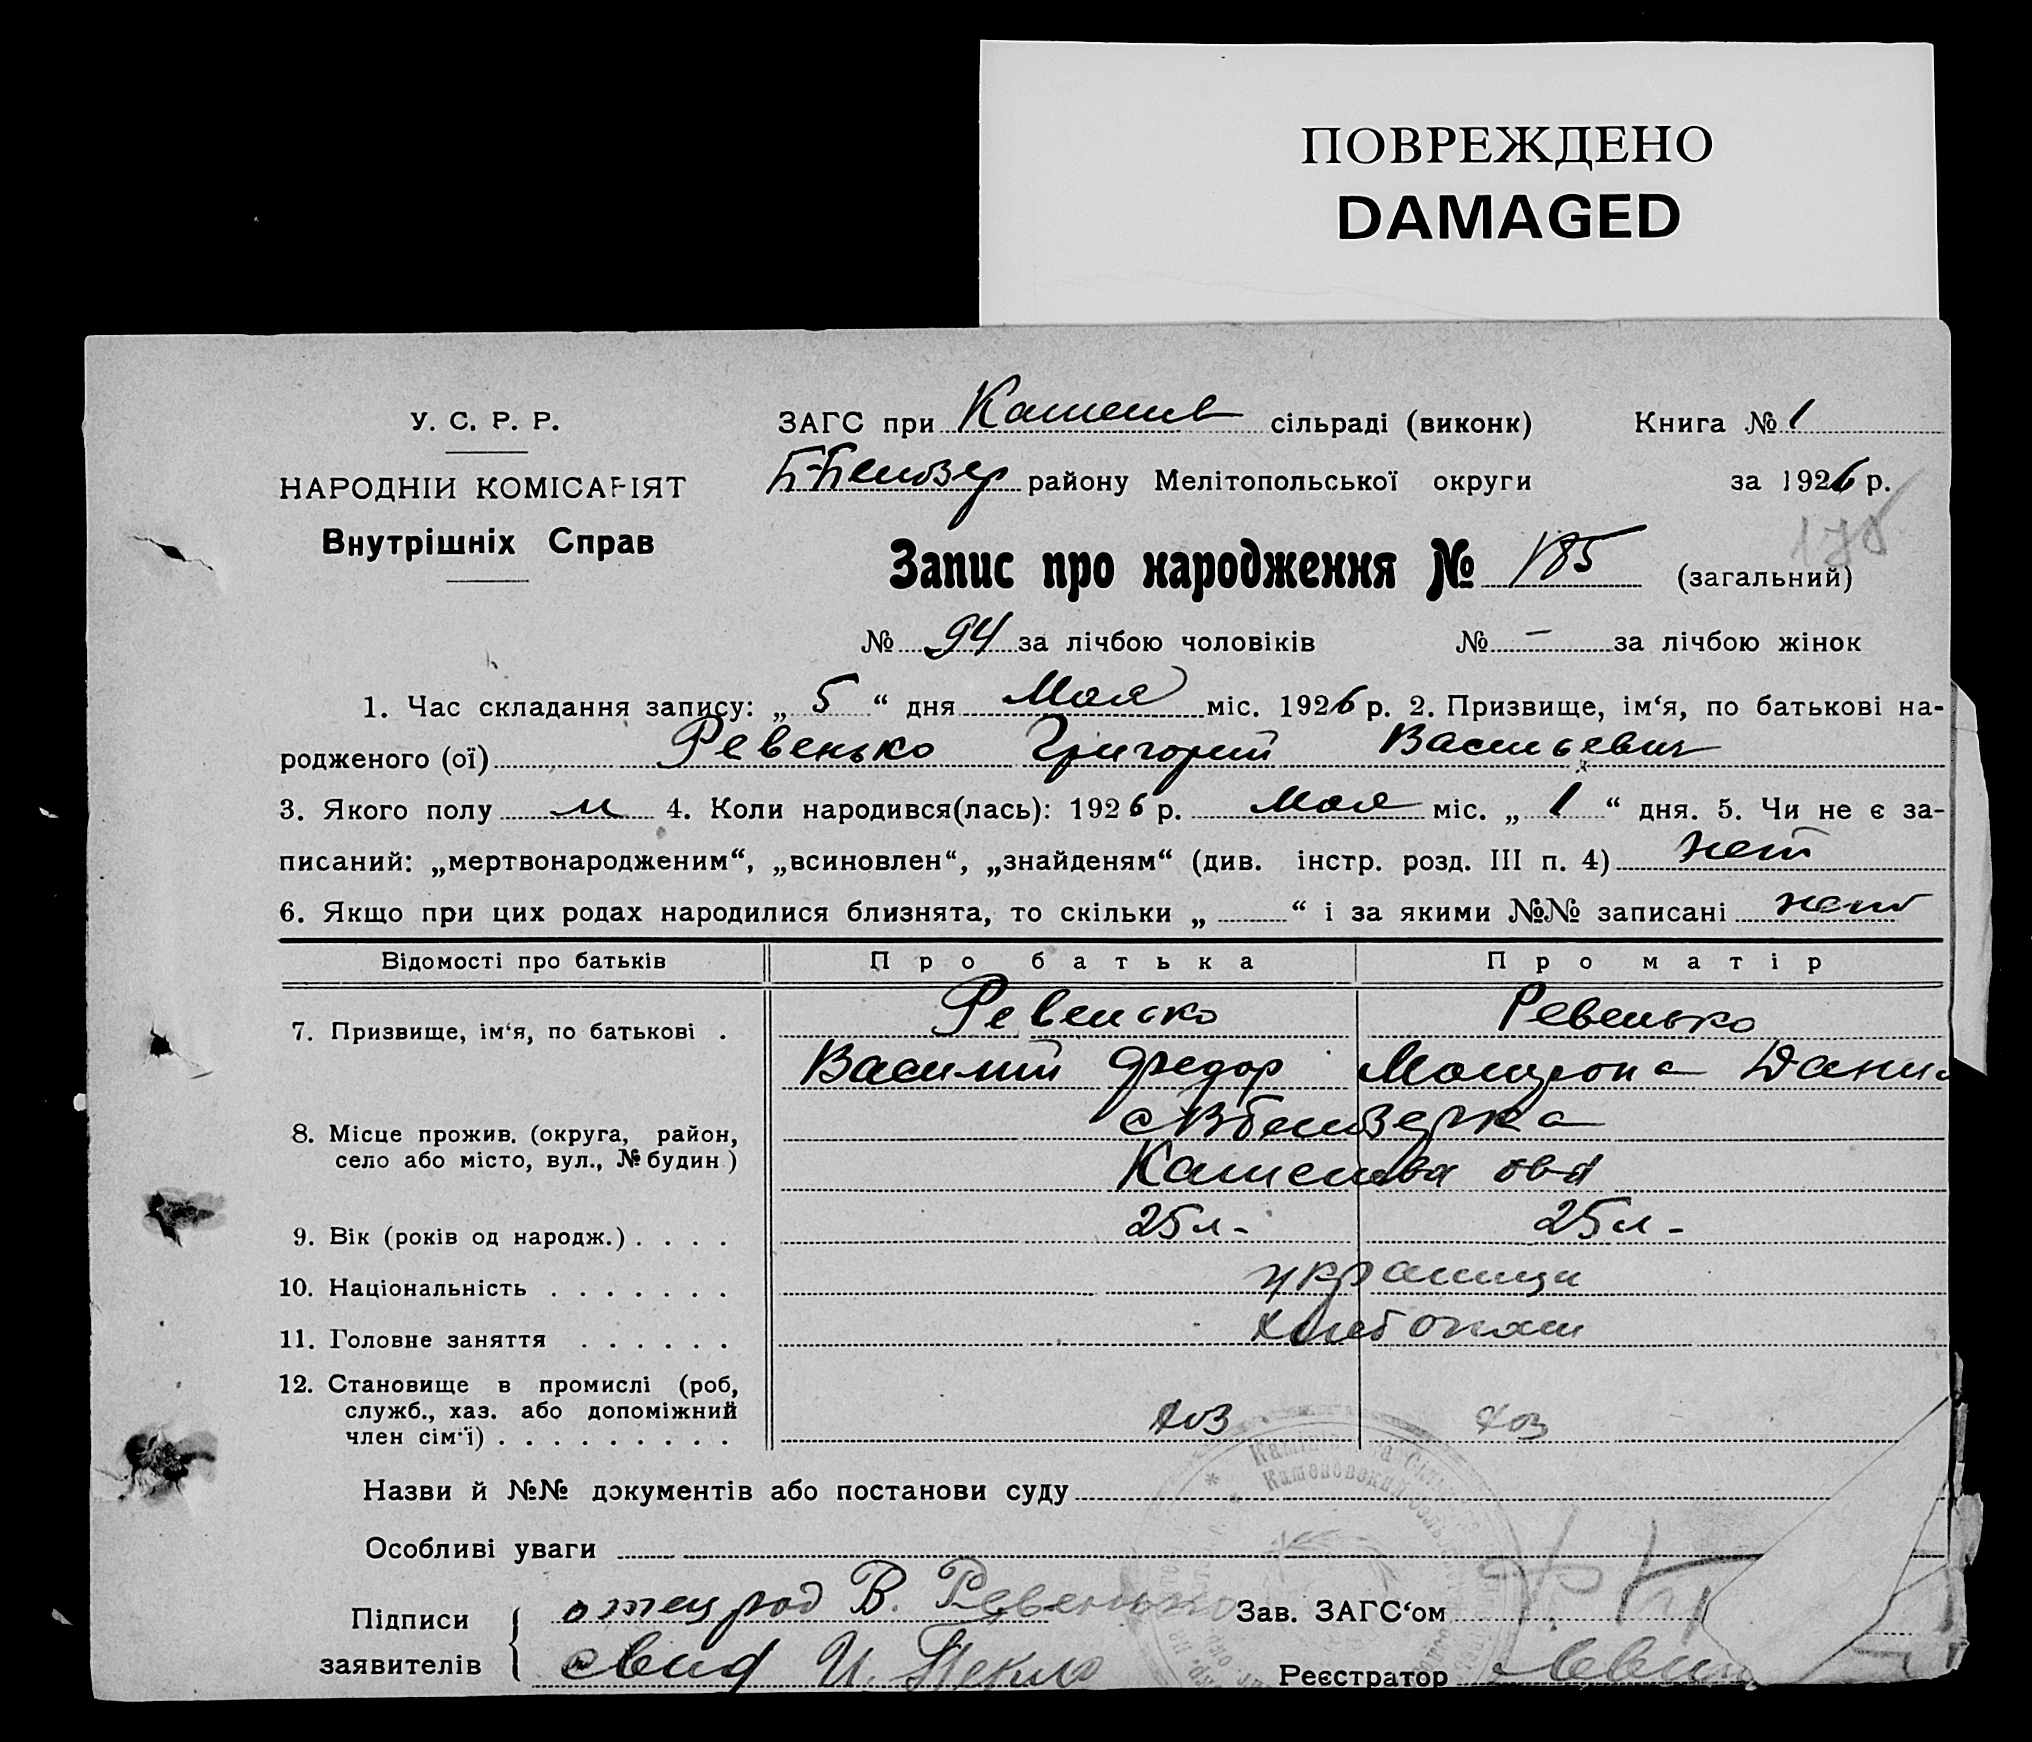 ПОВРЕЖДЕНО
DAMAGED
У. С. Р. Р.
ЗАГС при Каменов сільраді (виконк) Книга № 1
НАРОДНІЙ КОМІСАРІЯТ
району Мелітопольської округи за 1926 р.
Внутрішніх Справ
178
Запис про народження № 185 (загальний)
№ 94 за лічбою чоловіків № – за лічбою жінок
1. Час складання запису: „ 5 “ дня Мая міс. 1926 р. 2. Призвище, ім‘я, по батькові на-
родженого (ої) Ревенько Григорий Васильевич
3. Якого полу м 4. Коли народився(лась): 1926 р. Мая міс. „ 1 “ дня. 5. Чи не є за-
писаний: „мертвонародженим“, „всиновлен“, „знайденям“ (див. інстр. розд. III п. 4) нет
6. Якщо при цих родах народилися близнята, то скільки „ “ і за якими №№ записані нет
Відомості про батьків Про батька Про матір
7. Призвище, ім‘я, по батькові . Ревенько Ревенько
Василий Федор Дани
8. Місце прожив. (округа, район,
село або місто, вул., № будин.)
9. Вік (років од народж.) . . . . 25 л - 25 л -
10. Національність . . . . . . . украинци
11. Головне заняття . . . . . . хлебопаш
12. Становище в промислі (роб,
служб., хаз. або допоміжний
член сім‘ї) . . . . . . . . . хоз хоз
Назви й №№ документів або постанови суду
Особливі уваги
Підписи
заявителів
отец род В. Ревенько Зав. ЗАГС‘ом
свид И. Реєстратор